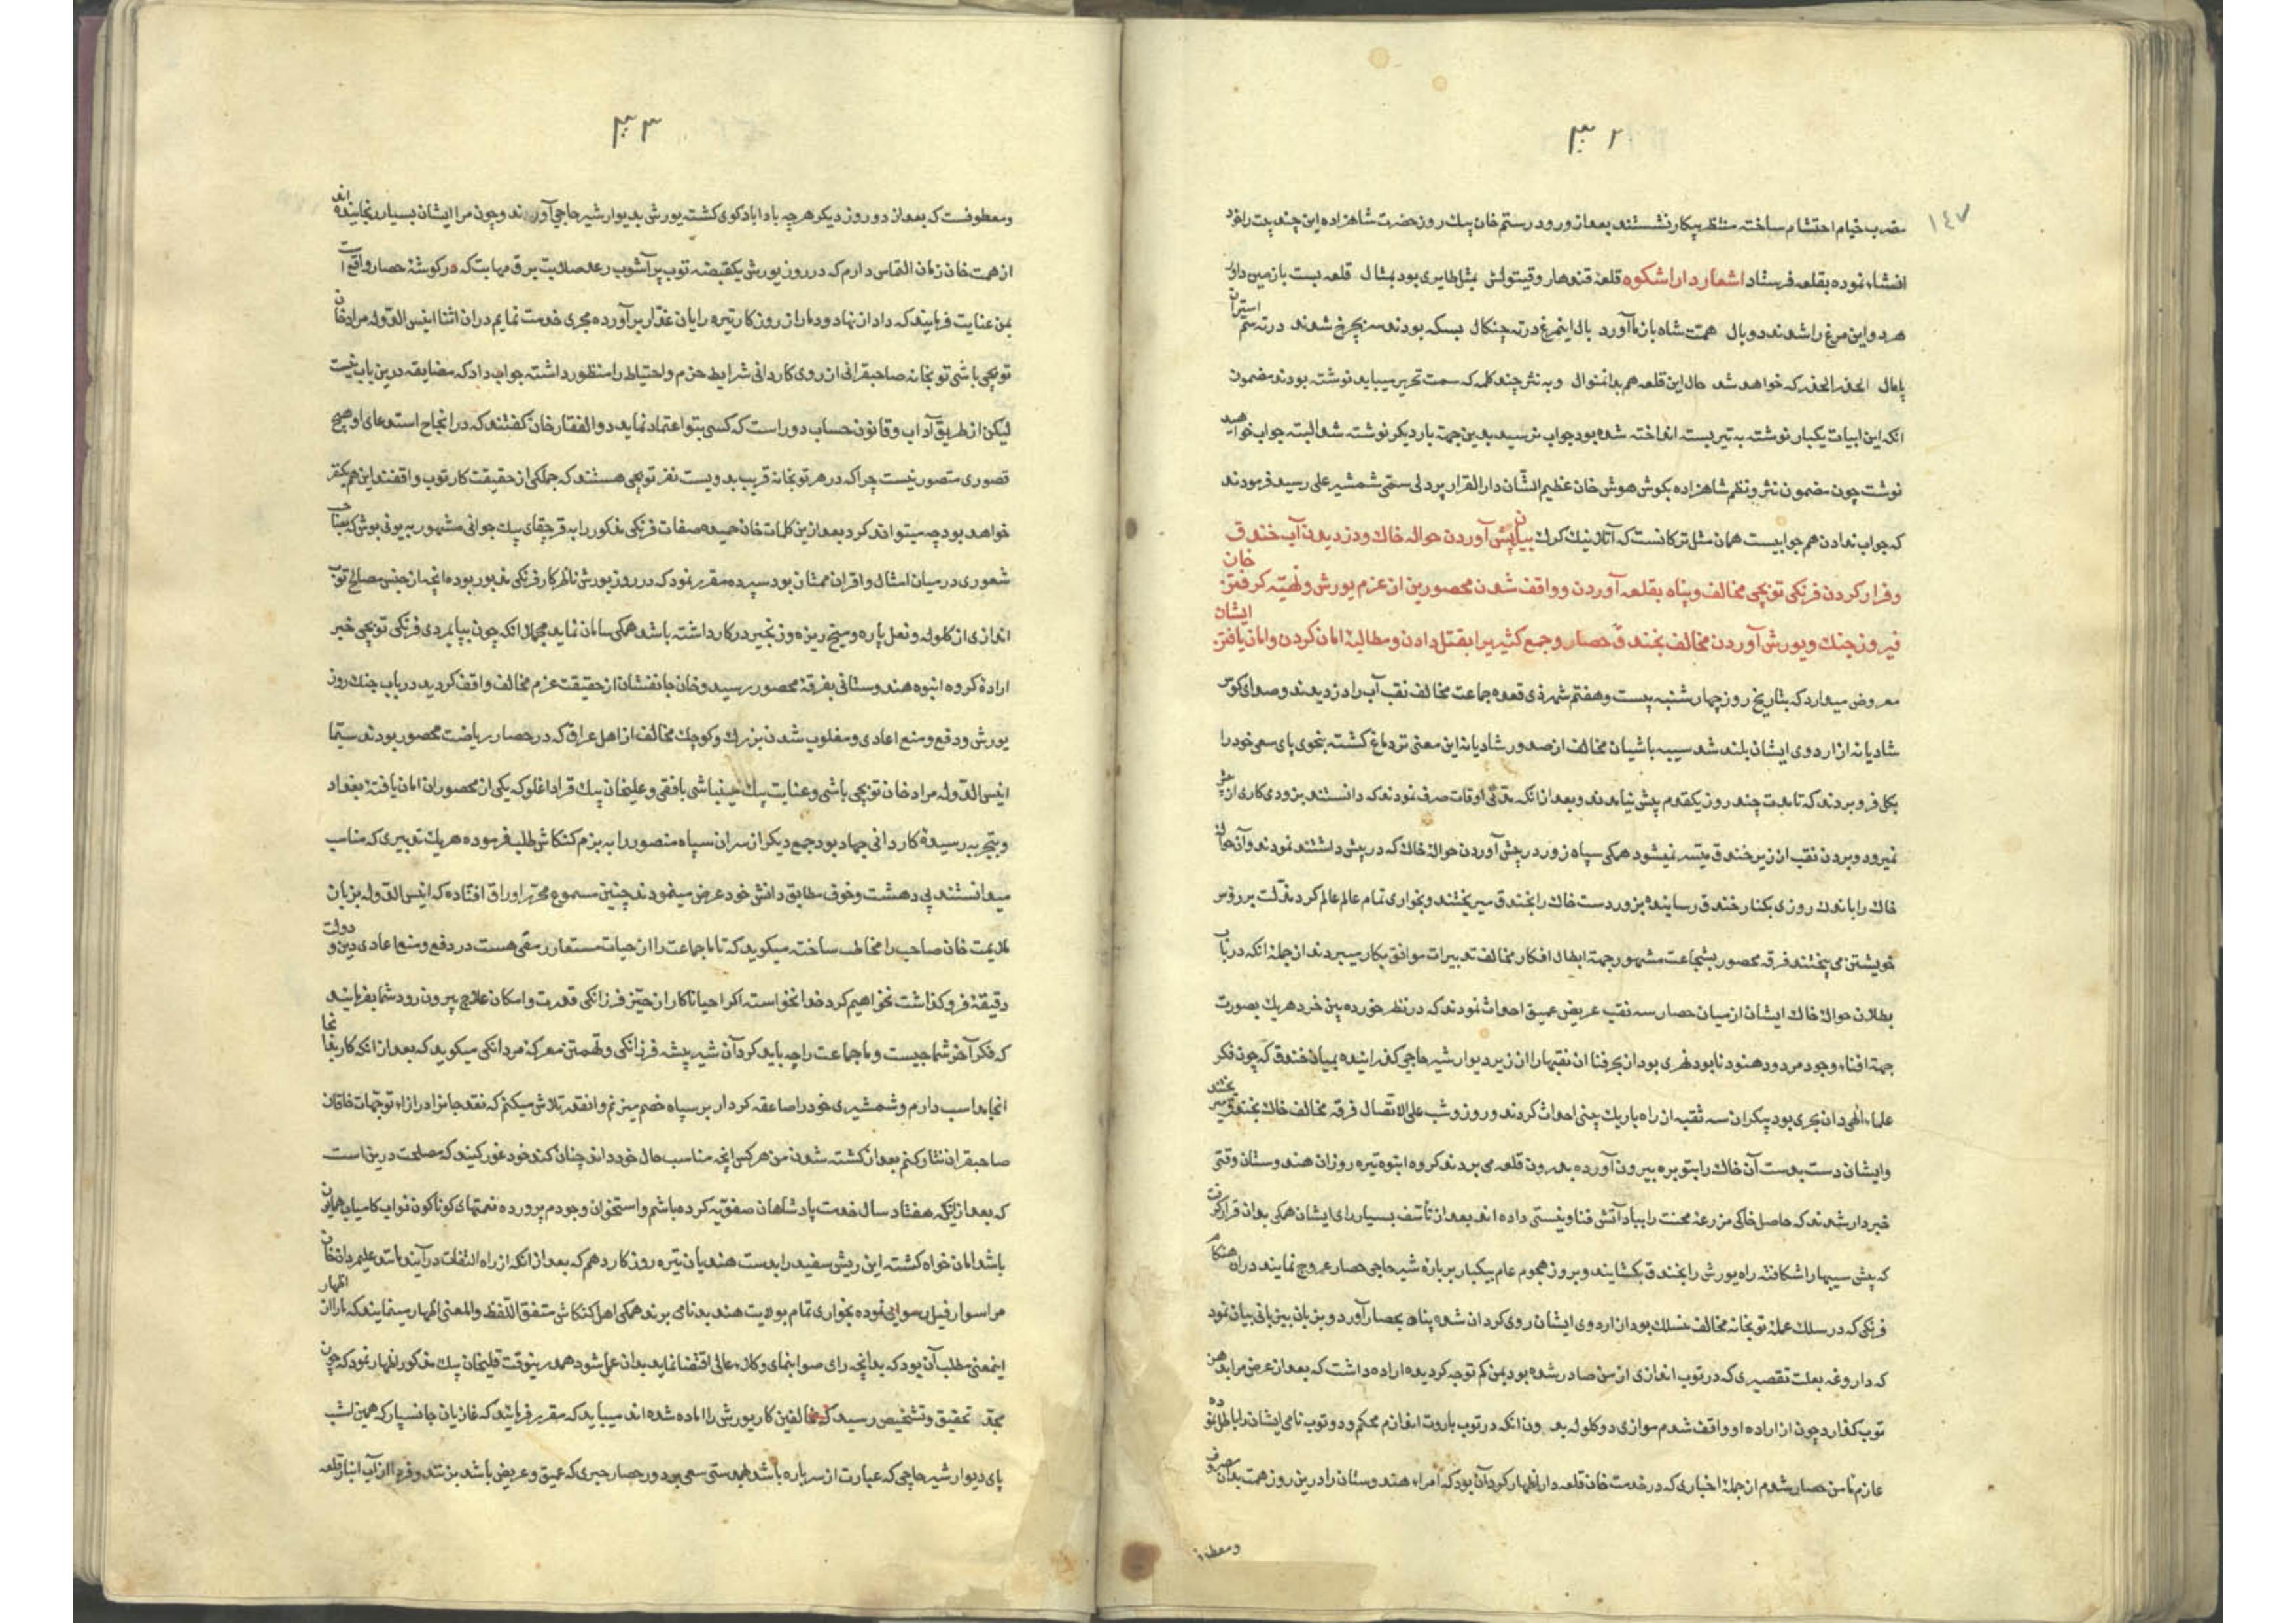 ۳۰۲
۱٤۷
مضرب خیام احتشام ساخته منتظر پیکار نشستند بعد از ورود رستم خان بیک روز حضرت شاهزاده این چند بیت را خود
انشاء نموده بقلعه فرستاد اشعار دارا شکوه قلعهٔ قندهار وقیتولش بمثل طایری بود بمثال قلعه بست با زمین داور
هر دو این مرغ را شدند دو بال همت شاه باز ما آورد بال اینمرغ در ته چنکال بسکه بودند سنچرخ شدند در ته ستم
پامال الحذر الحذر که خواهد شد حال این قلعه هم بدانمنوال وبه نثر چند کلمه که سمت تحریر میباید نوشته بودند مضمون
انکه این ابیات یکبار نوشته به تیر بسته انداخته شده بود جواب نرسید بدین جهة بار دیکر نوشته شد البته جواب خواهید
نوشت چون مضمون نثر ونظم شاهزاده بکوش هوش خان عظیم الشان دار القرار پردلی سمی شمشیر علی رسید فرمودند
که جواب ندادن هم جوابیست همان مثل ترکانست که بیان پیش آوردن حواله خاک ودزدیدن آب خندق
وفرار کردن فرنکی توپچی مخالف وپناه بقلعه آوردن وواقف شدن محصورین از عزم یورش وتهیّه کرفتن خان
فیروز جنک ویورش آوردن مخالف بخندق حصار وجمع کثیر برا بقتل دادن ومطالبهٔ امان کردن وامان یافتن ایشان
معروض میدارد که بتاریخ روز چهار شنبه بیست وهفتم شهر ذی قعده جماعت مخالف نقب آب را دزدیدند وصدای کوس
شادیانه از اردوی ایشان بلند شد سیبه باشیان مخالف از صدور شادیانه این معنی تر دماغ کشته بنحوی پای سعی خود را
بکل فرو بردند که تا مدت چند روز یکقدم پیش نیامدند وبعد از انکه مدتی اوقات صرف نمودند که دانستند بزودی کاری از پیش
نمیرود وبردن نقب از زیر خندق میسر نمیشود همکی سپاه زور در پیش آوردن حوالهٔ خاک که در پیش داشتند نمودند وآن
خاک را باندک روزی بکنار خندق رسانیده بزور دست خاک را بخندق میریختند وبخواری تمام عالم عالم کرد مذلت بر رؤس
خویشتن می بیختند فرقه محصور بشجاعت مشهور جهة ابطال افکار مخالف تدبیرات موافق بکار میبردند از جمله انکه در باب
بطلان حوالهٔ خاک ایشان از میان حصار سه نقب عریض عمیق احداث نمودند که در نظر خورده بین خرد هر یک بصورت
جهة افناء وجود مردود هنود نابود نهری بود از بحر فنا ان نقبها را از زیر دیوار شیر حاجی کذرانیده بمیان خندق که چون فکر
علماء الهی دان بحری بود بیکران سه نقبه از راه باریک بینی احداث کردند وروز وشب علی الاتصال فرقه مخالف خاک بخندق میریختند
وایشان دست بدست آن خاک را بتوبره بیرون آورده بدرون قلعه می بردند کروه انبوه تیره روزان هندوستان وقتی
خبردار شدند که حاصل خاکی مزرعهٔ محنت را بباد آتش فنا ونیستی داده اند بعد از تأسف بسیار رای ایشان همکی بدان قرار کرفت
که پیش سیبها را شکافته راه یورش را بخندق بکشایند وبروز هجوم عام بیکبار بر بارهٔ شیر حاجی حصار عروج نمایند در ان هنکام
فرنکی که در سلک عملهٔ توپخانه مخالف منسلک بود از اردوی ایشان روی کردان شده پناه بحصار آورد وبزبان بیزبانی بیان نمود
که داروغه بعلت تقصیری که در توپ اندازی از من صادر شده بود بمن کم توجه کردیده اراده داشت که بعد از عرض مرا بدهن
توپ کذارد چون از اراده او واقف شدم موازی دو کلوله بدون انکه در توپ باروت اندازم محکم ودو توپ نامی ایشان را باطل نموده
عازم مامن حصار شدم از جملهٔ اخباری که در خدمت خان قلعه دار اظهار کرد آن بود که امراء هندوستان را درین روز همت بدان مصروف
ومعطوف
۳۰۳
ومعطوفست که بعد از دو روز دیکر هرچه بادا باد کوی کشته یورش بدیوار شیر حاجی آورند وچون مرا ایشان بسیار رنجانیده اند
از همت خان زمان التماس دارم که در روز یورش یکقبضه توپ پر آشوب رعد صلابت برق مهابت که در کوشهٔ حصار واقع است
بمن عنایت فرمایند که داد از نهاد ودمار از روزکار تیره رایان غدار بر آورده مجری خدمت نمایم در ان اثنا انیس الدوله مراد خان
توپچی باشی توپخانه صاحبقرانی از روی کاردانی شرایط حزم واحتیاط را منظور داشته جواب داد که مضایقه درین باب نیست
لیکن از طریق آداب وقانون حساب دور است که کسی بتو اعتماد نماید ذوالفقار خان کفتند که در انجاح استدعای او هیچ
قصوری متصور نیست چرا که در هر توپخانه قریب بدویست نفر توپچی هستند که جملکی از حقیقت کار توپ واقفند این هم یکنفر
خواهد بود چه میتواند کرد بعد ازین کلمات خان حمیده صفات فرنکی مذکور را به قرجقای بیک جوانی مشهور به یونی بوش که بصاحب
شعوری در میان امثال واقران ممتاز بود سپرده مقرر نمود که در روز یورش ناظر کار فرنکی مذبور بوده انچه از جنس مصالح توپ
اندازی از کلوله ونعل پاره ومیخ ریزه وزنجیر در کار داشته باشد همکی سامان نماید مجملا انکه چون بپایمردی فرنکی توپچی خبر
ارادهٔ کروه انبوه هندوستانی بفرقهٔ محصور رسید وخان جانفشان از حقیقت عزم مخالف واقف کردید در باب جنک روز
یورش ودفع ومنع اعادی ومغلوب شدن بزرک وکوچک مخالف از اهل عراق که در حصار ریاضت محصور بودند سیما
انیس الدوله مراد خان توپچی باشی وعنایت بیک بافقی وعلیخان بیک قراداغلو که یکی از محصوران امان یافتهٔ بغداد
وبتجربه رسیدهٔ کاردانی جهاد بود جمع دیکر از سران سپاه منصور را به بزم کنکاش طلب فرموده هر یک تدبیری که مناسب
میدانستند بی دهشت وخوف مطابق دانش خود عرض مینمودند چنین مسموع محرر اوراق افتاده که انیس الدوله بزبان
ملایمت خان صاحب را مخاطب ساخته میکوید که تا ما جماعت را از حیات مستعار رمقی هست در دفع ومنع اعادی دین ودولت
دقیقهٔ فروکذاشت نخواهیم کرد خدا نخواسته اکر احیانا کار از حیّز فرزانکی قدرت وامکان علاج بیرون رود شما بفرمایند
که فکر آخر شما چیست وما جماعت را چه باید کرد آن شیر بیشه فرزانکی وتهمتن معرکهٔ مردانکی میکوید که بعد از انکه کار بدانجا
انجامد اسب دارم وشمشیری خود را صاعقه کردار بر سپاه خصم میزنم وانقدر تلاش میکنم که نقد جانرا در ازاء توجهات خاقان
صاحبقران نثار کنم بعد از کشته شدن من هر کس انچه مناسب حال خود داند چنان کند خود غور کنید که مصلحت درین است
که بعد از انکه هفتاد سال خدمت پادشاهان صفویّه کرده باشم واستخوان وجودم پرورده نعمتهای کوناکون نواب کامیاب همایون
باشد امان خواه کشته این ریش سفید را بدست هندیان تیره روزکار دهم که بعد از انکه از راه التفات در آیند مانند علیمردان خان
مرا سوار فیل رسوایی نموده بخواری تمام بولایت هند بدنامی برند همکی اهل کنکاش متفق اللفظ والمعنی اظهار مینمایند که یاران اظهار
اینمعنی مطلب آن بود که بدانچه رای صوابنمای وکلاء عالی اقتضا نماید بدان عمل شود همدرینوقت قلیخان بیک مذکور اظهار نمود که چون
تحقیق وتشخیص رسید که مخالفین کار یورش را اماده شده اند میباید که مقرر فرمایند که غازیان جانسپار که همین شب
پای دیوار شیر حاجی که عبارت از سر باره باشد بهمدستی سعی بر دور حصار جری که عمیق وعریض باشد بزنند وفردا از آب انبار قلعه